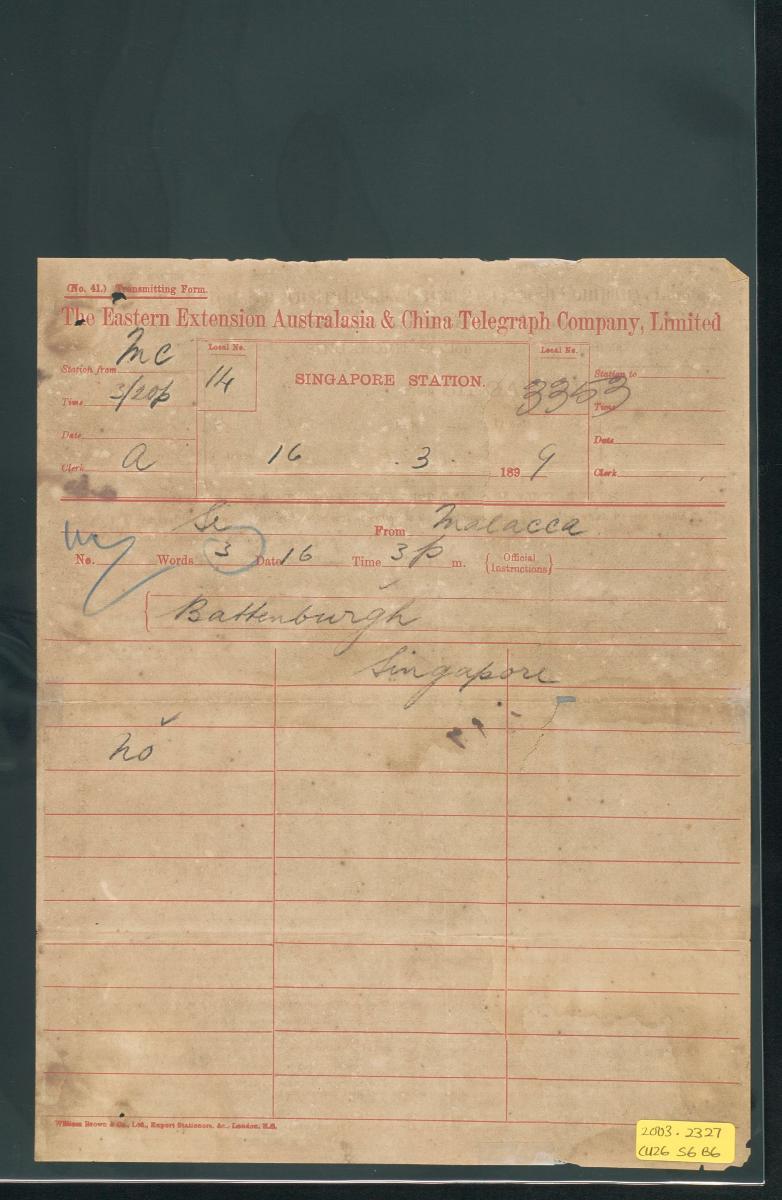 (No. 41.) Transmitting Form.
The Eastern Extension Australasia & China Telegraph Company, Limited
Station from Mc
Time 3/20p
Date
Clerk a
Local No.
14
SINGAPORE STATION.
16 . 3 . 1899
Local No.
3353
Station to
Time
Date
Clerk
From Malacca
No. Words 3 Date 16 Time 3 p m. {Official Instructions}
Battenburgh
Singapore
no
William Brown & Co., Ltd., Export Stationers, &c., London, E.C.
2003.2327
CU26 S6 B6